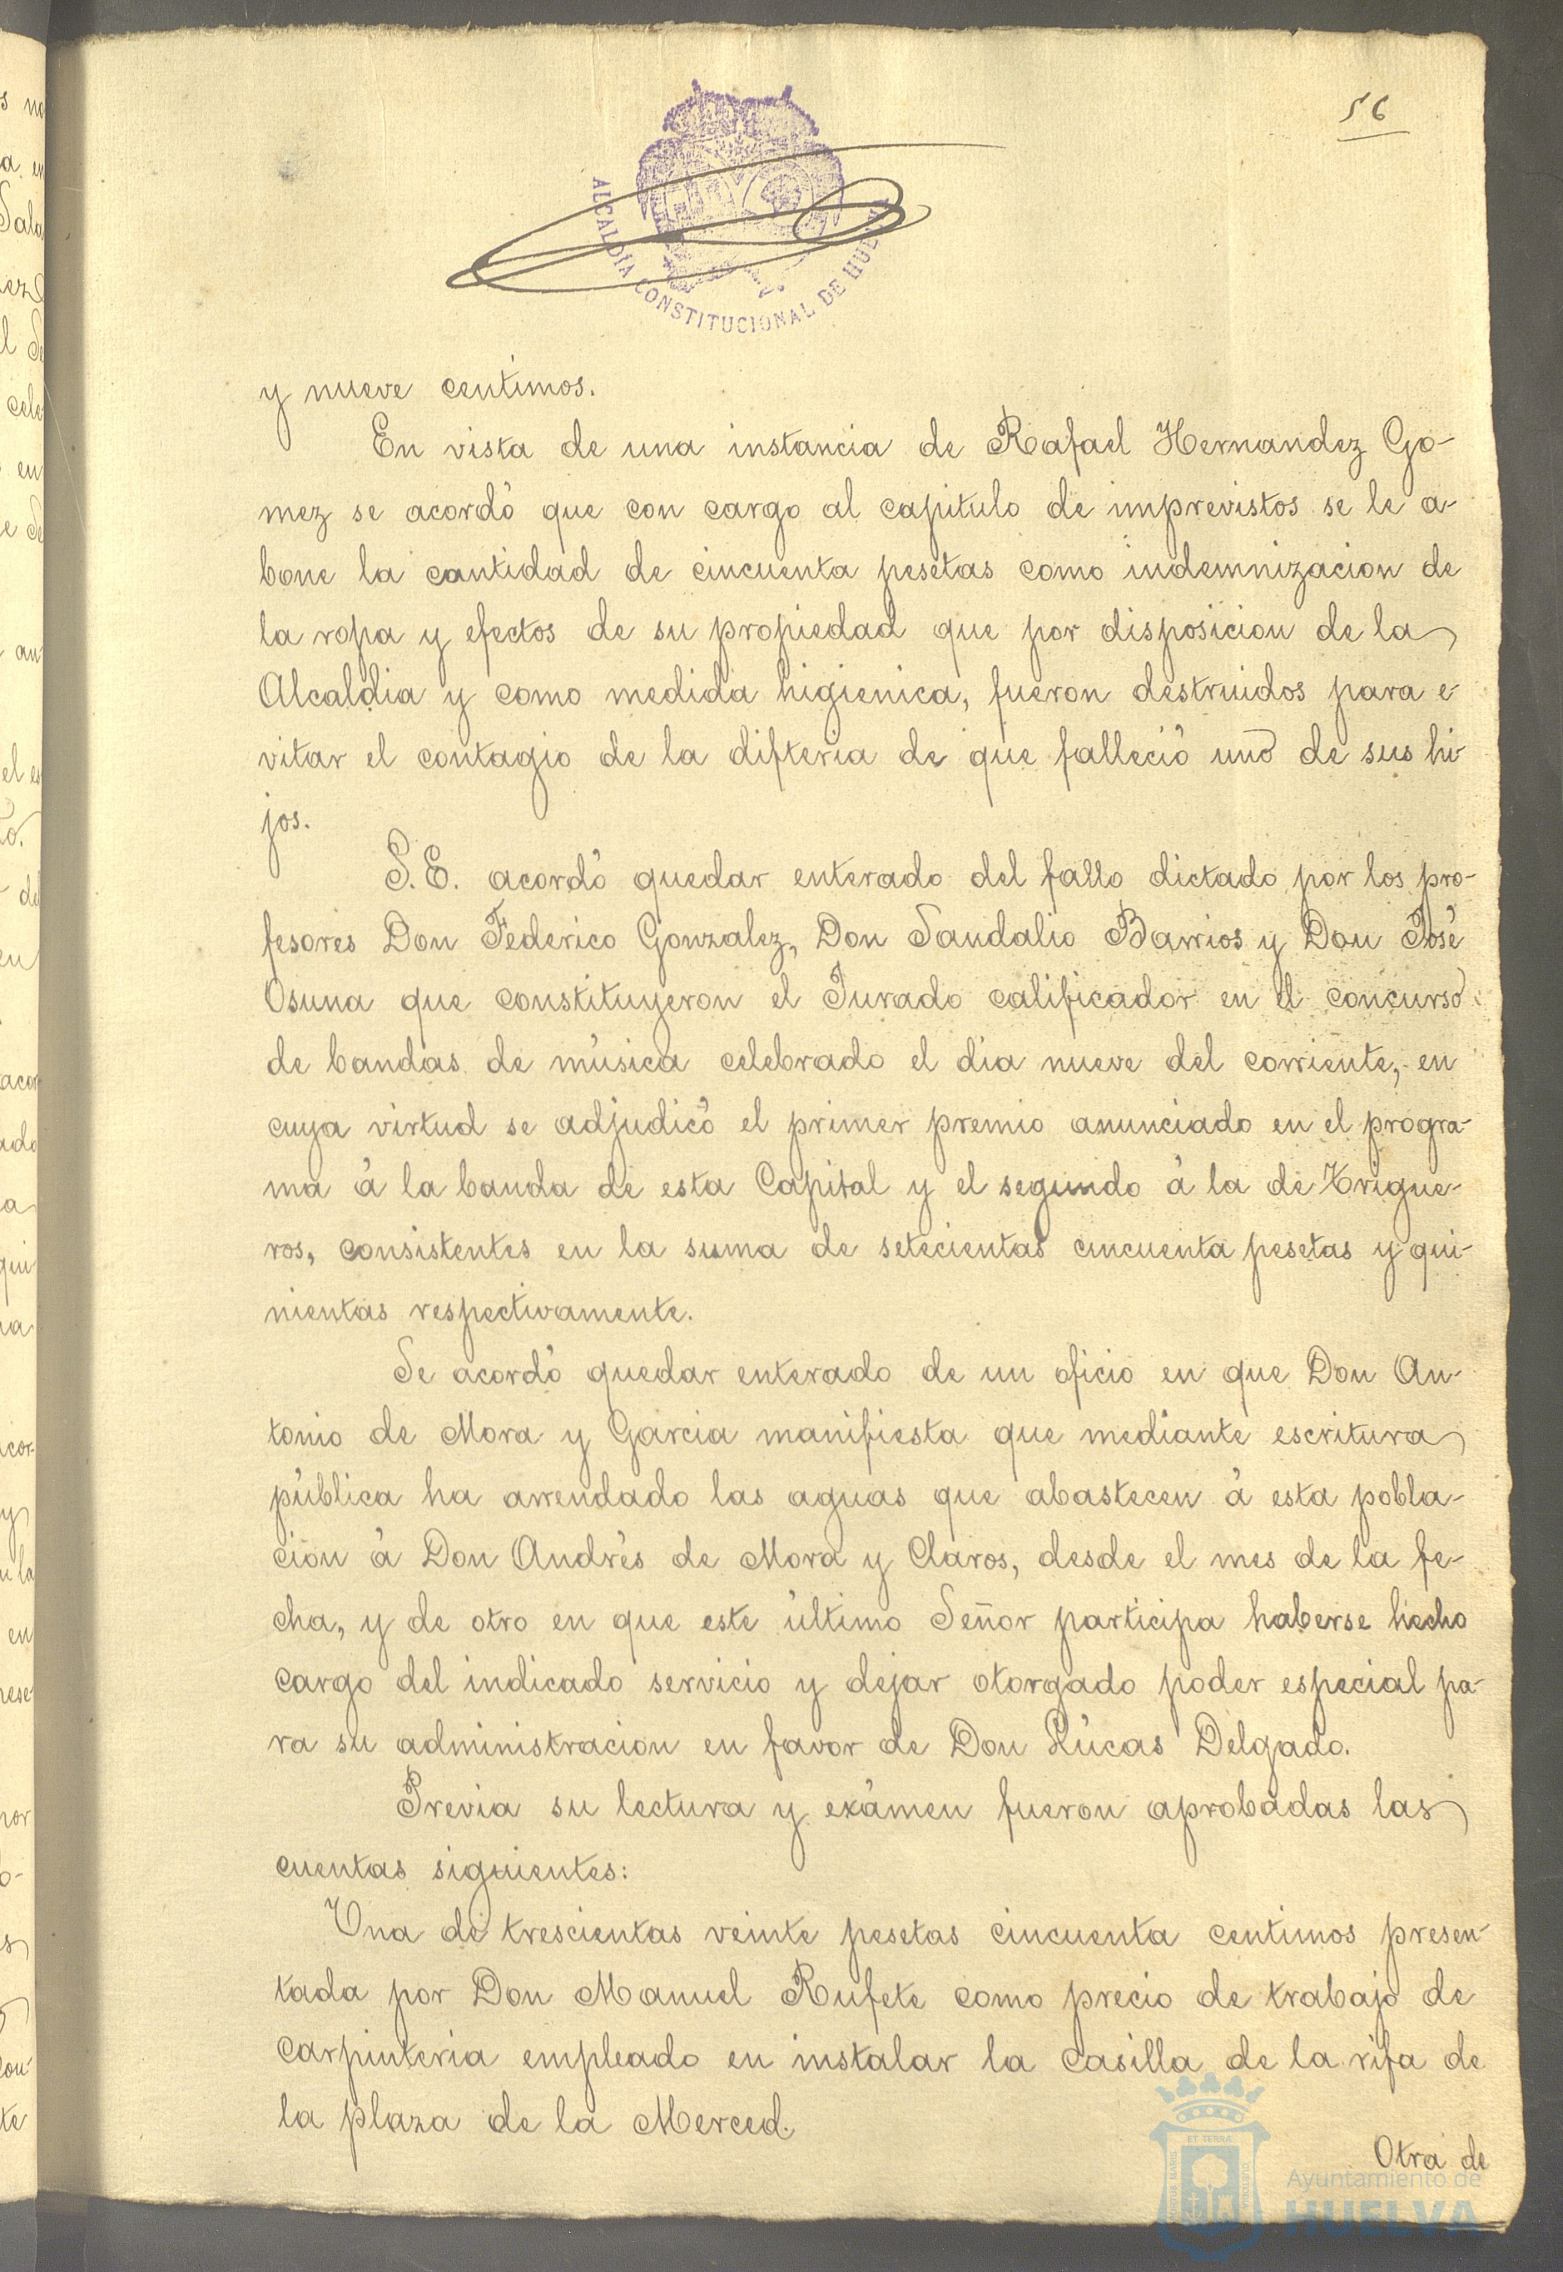 56
ALCALDÍA CONSTITUCIONAL DE HUELVA
y nueve centimos.
En vista de una instancia de Rafael Hernandez Go-
mez se acordó que con cargo al capitulo de imprevistos se le a-
bone la cantidad de cincuenta pesetas como indemnizacion de
la ropa y efectos de su propiedad que por disposicion de la
Alcaldia y como medida higienica, fueron destruidos para e-
vitar el contagio de la difteria de que falleció uno de sus hi-
jos.
S. E. acordó quedar enterado del fallo dictado por los pro-
fesores Don Federico Gonzalez, Don Sandalio Barrios y Don José
Osuna que constituyeron el Jurado calificador en el concurso
de bandas de música celebrado el día nueve del corriente, en
cuya virtud se adjudicó el primer premio anunciado en el progra-
ma á la banda de esta Capital y el segundo á la de Trigue-
ros, consistentes en la suma de setecientas cincuenta pesetas y qui-
nientas respectivamente.
Se acordó quedar enterado de un oficio en que Don An-
tonio de Mora y Garcia manifiesta que mediante escritura
pública ha arrendado las aguas que abastecen á esta pobla-
cion á Don Andrés de Mora y Claros, desde el mes de la fe-
cha, y de otro en que este último Señor participa haberse hecho
cargo del indicado servicio y dejar otorgado poder especial pa-
ra su administracion en favor de Don Lúcas Delgado.
Previa su lectura y exámen fueron aprobadas las
cuentas siguientes:
Una de trescientas veinte pesetas cincuenta centimos presen-
tada por Don Manuel Rufete como precio de trabajo de
carpinteria empleado en instalar la casilla de la rifa de
la plaza de la Merced.
Otra de
Ayuntamiento de
HUELVA